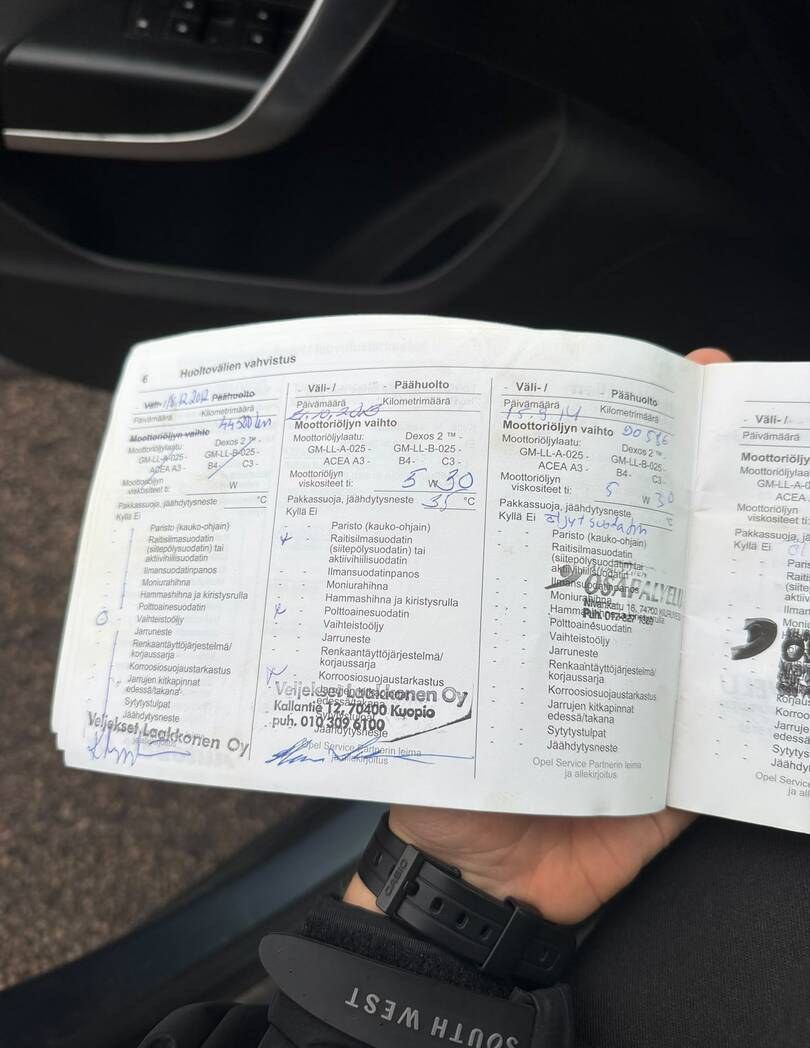 6 Huoltovälien vahvistus
Väli- 18.12.2012 Päähuolto
Päivämäärä Kilometrimäärä
Moottoriöljyn vaihto
Moottoriöljylaatu: Dexos 2 ™ -
GM-LL-A-025 - GM-LL-B-025 -
ACEA A3 - B4- C3 -
Moottoriöljyn
viskositeet ti: W
Pakkassuoja, jäähdytysneste °C
Kyllä Ei
Paristo (kauko-ohjain)
Raitisilmasuodatin
(siitepölysuodatin) tai
aktiivihiilisuodatin
Ilmansuodatinpanos
Moniurahihna
Hammashihna ja kiristysrulla
Polttoainesuodatin
Vaihteistoöljy
Jarruneste
Renkaantäyttöjärjestelmä/
korjaussarja
Korroosiosuojaustarkastus
Jarrujen kitkapinnat
edessä/takana
Sytytystulpat
Jäähdytysneste
Veljekset Laakkonen Oy
- Väli- / - Päähuolto
Päivämäärä Kilometrimäärä
Moottoriöljyn vaihto
Moottoriöljylaatu: Dexos 2 ™ -
GM-LL-A-025 - GM-LL-B-025 -
ACEA A3 - B4- C3 -
Moottoriöljyn
viskositeet ti: 5 W 30
Pakkassuoja, jäähdytysneste 35 °C
Kyllä Ei
Paristo (kauko-ohjain)
Raitisilmasuodatin
(siitepölysuodatin) tai
aktiivihiilisuodatin
Ilmansuodatinpanos
Moniurahihna
Hammashihna ja kiristysrulla
Polttoainesuodatin
Vaihteistoöljy
Jarruneste
Renkaantäyttöjärjestelmä/
korjaussarja
Korroosiosuojaustarkastus
Veljekset Laakkonen Oy
edessä/takana
Kallantie 12, 70400 Kuopio
Sytytystulpat
puh. 010 309 6100
Jäähdytysneste
Opel Service Partnerin leima
ja allekirjoitus
- Väli- / - Päähuolto
Päivämäärä Kilometrimäärä
15.9.14
Moottoriöljyn vaihto
Moottoriöljylaatu: Dexos 2 ™ -
GM-LL-A-025 - GM-LL-B-025 -
ACEA A3 - B4- C3 -
Moottoriöljyn
viskositeet ti: 5 W 30
Pakkassuoja, jäähdytysneste °C
Kyllä Ei
Paristo (kauko-ohjain)
Raitisilmasuodatin
(siitepölysuodatin) tai
aktiivihiilisuodatin
Ilmansuodatinpanos
OSAPALVELU
Moniurahihna
Polttoainesuodatin
Vaihteistoöljy
Jarruneste
Renkaantäyttöjärjestelmä/
korjaussarja
Korroosiosuojaustarkastus
Jarrujen kitkapinnat
edessä/takana
Sytytystulpat
Jäähdytysneste
Opel Service Partnerin leima
ja allekirjoitus
- Väli- /
Päivämäärä
CASIO
SOUTH WEST